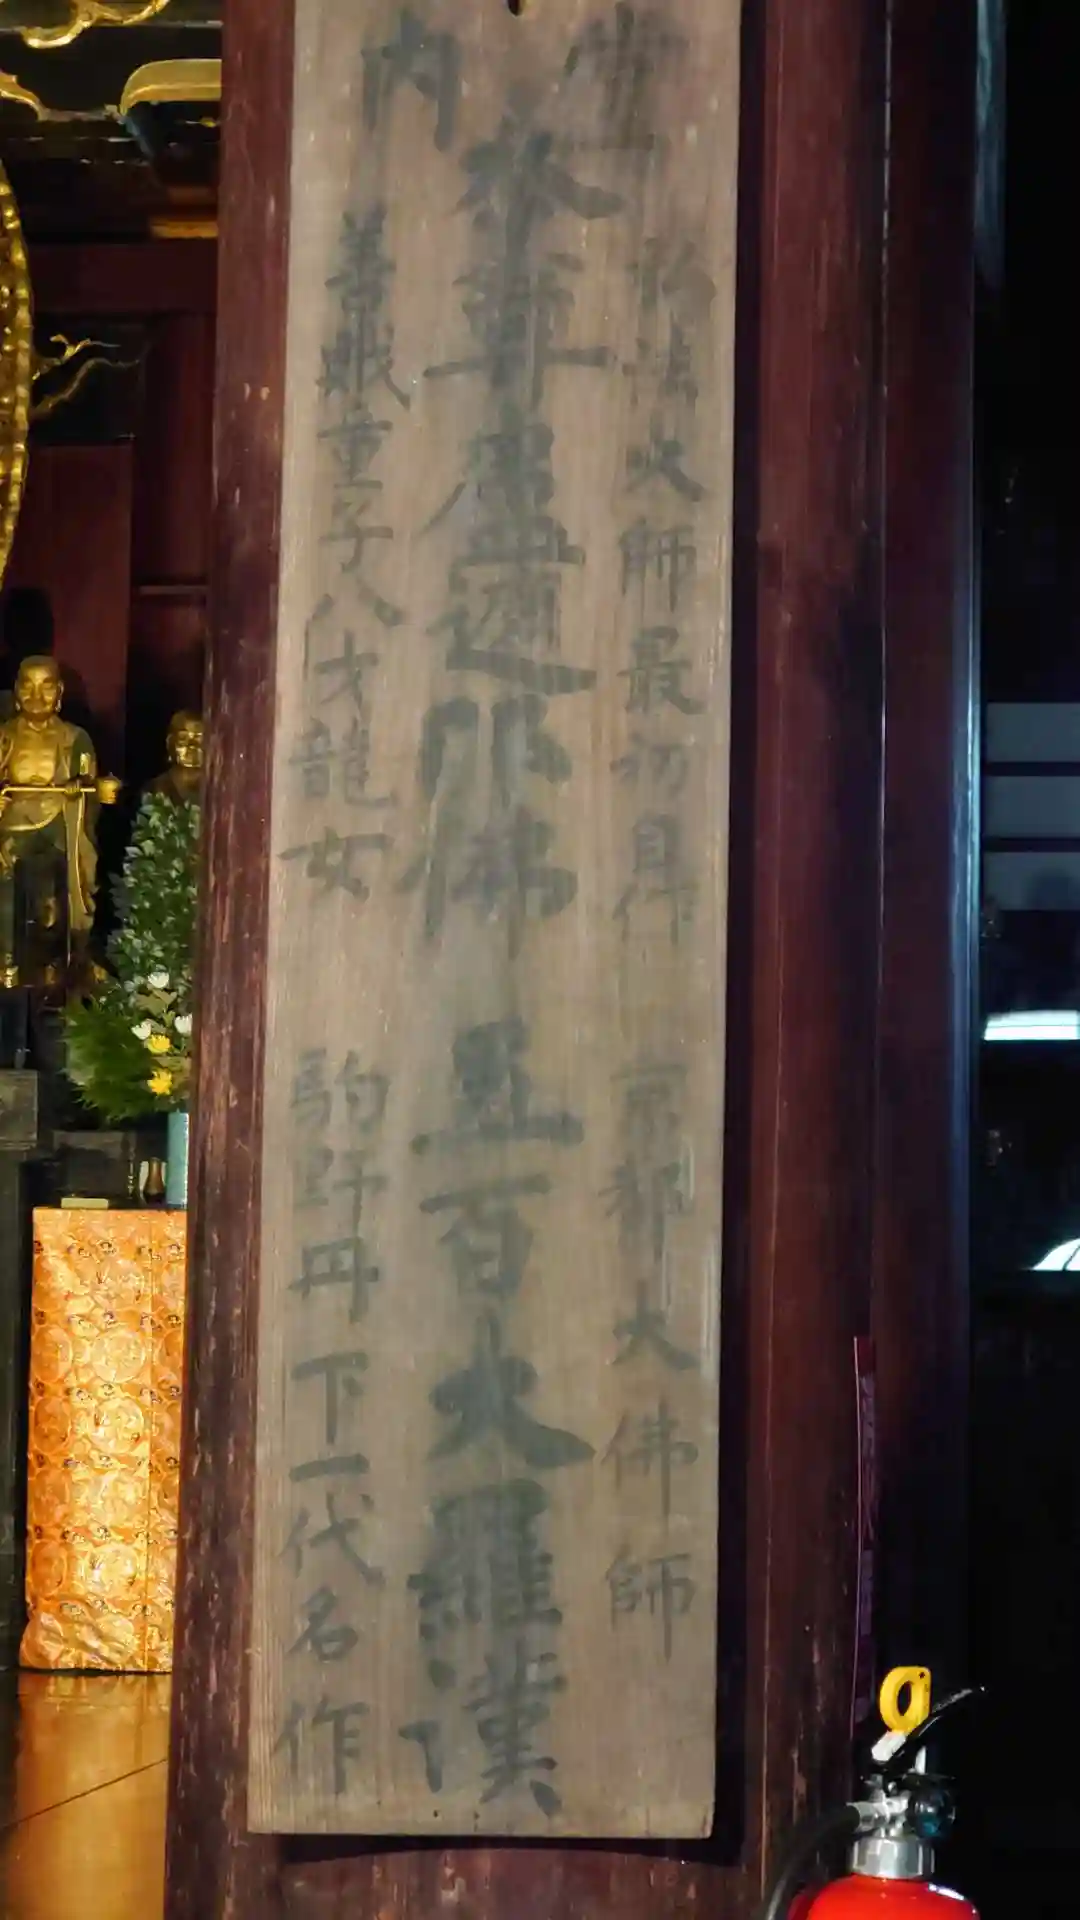 堂内
弘法大師最初自作 京都大佛師
本尊盧遮那佛 五百大羅漢
善哉童子八才龍女 駒野丹下一代名作